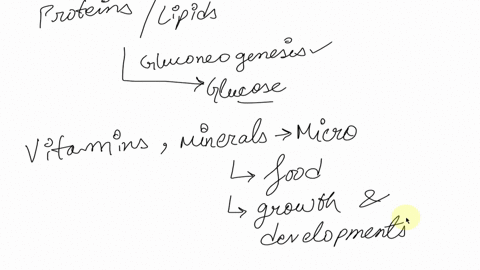 Proteins / Lipids
Gluconeogenesis ✓
Glucose
Vitamins, minerals → Micro
↳ food
↳ growth &
developments